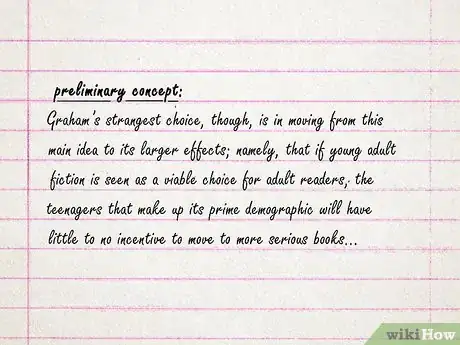 preliminary concept:
Graham's strangest choice, though, is in moving from this
main idea to its larger effects; namely, that if young adult
fiction is seen as a viable choice for adult readers, the
teenagers that make up its prime demographic will have
little to no incentive to move to more serious books...
wikiHow